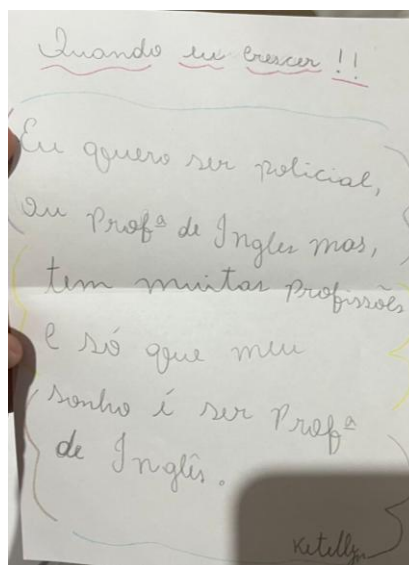 Quando eu crescer!!
Eu quero ser policial,
ou Profª de Ingles mas,
tem muitas profissões
e só que meu
sonho é ser Profª
de Inglês.
Ketelly